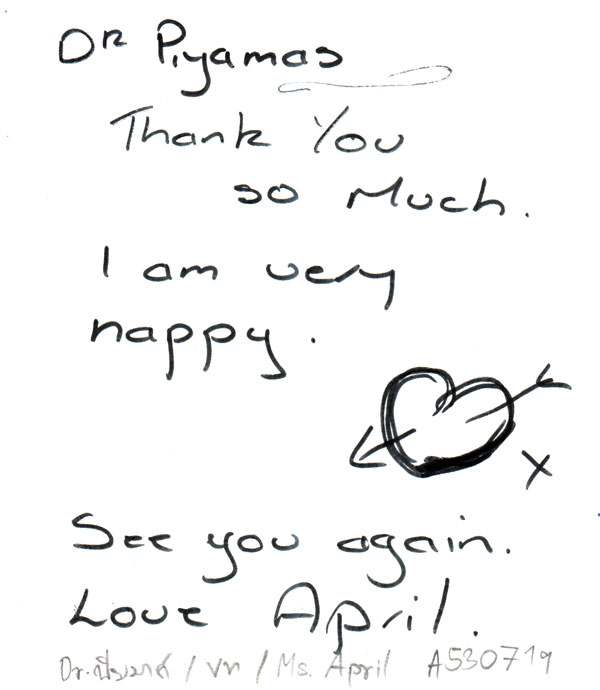 Dr Piyamas
Thank You
so Much.
I am very
happy.
x
See you again.
Love April.
Dr. ปิยะมาศ / VN / Ms. April A530719